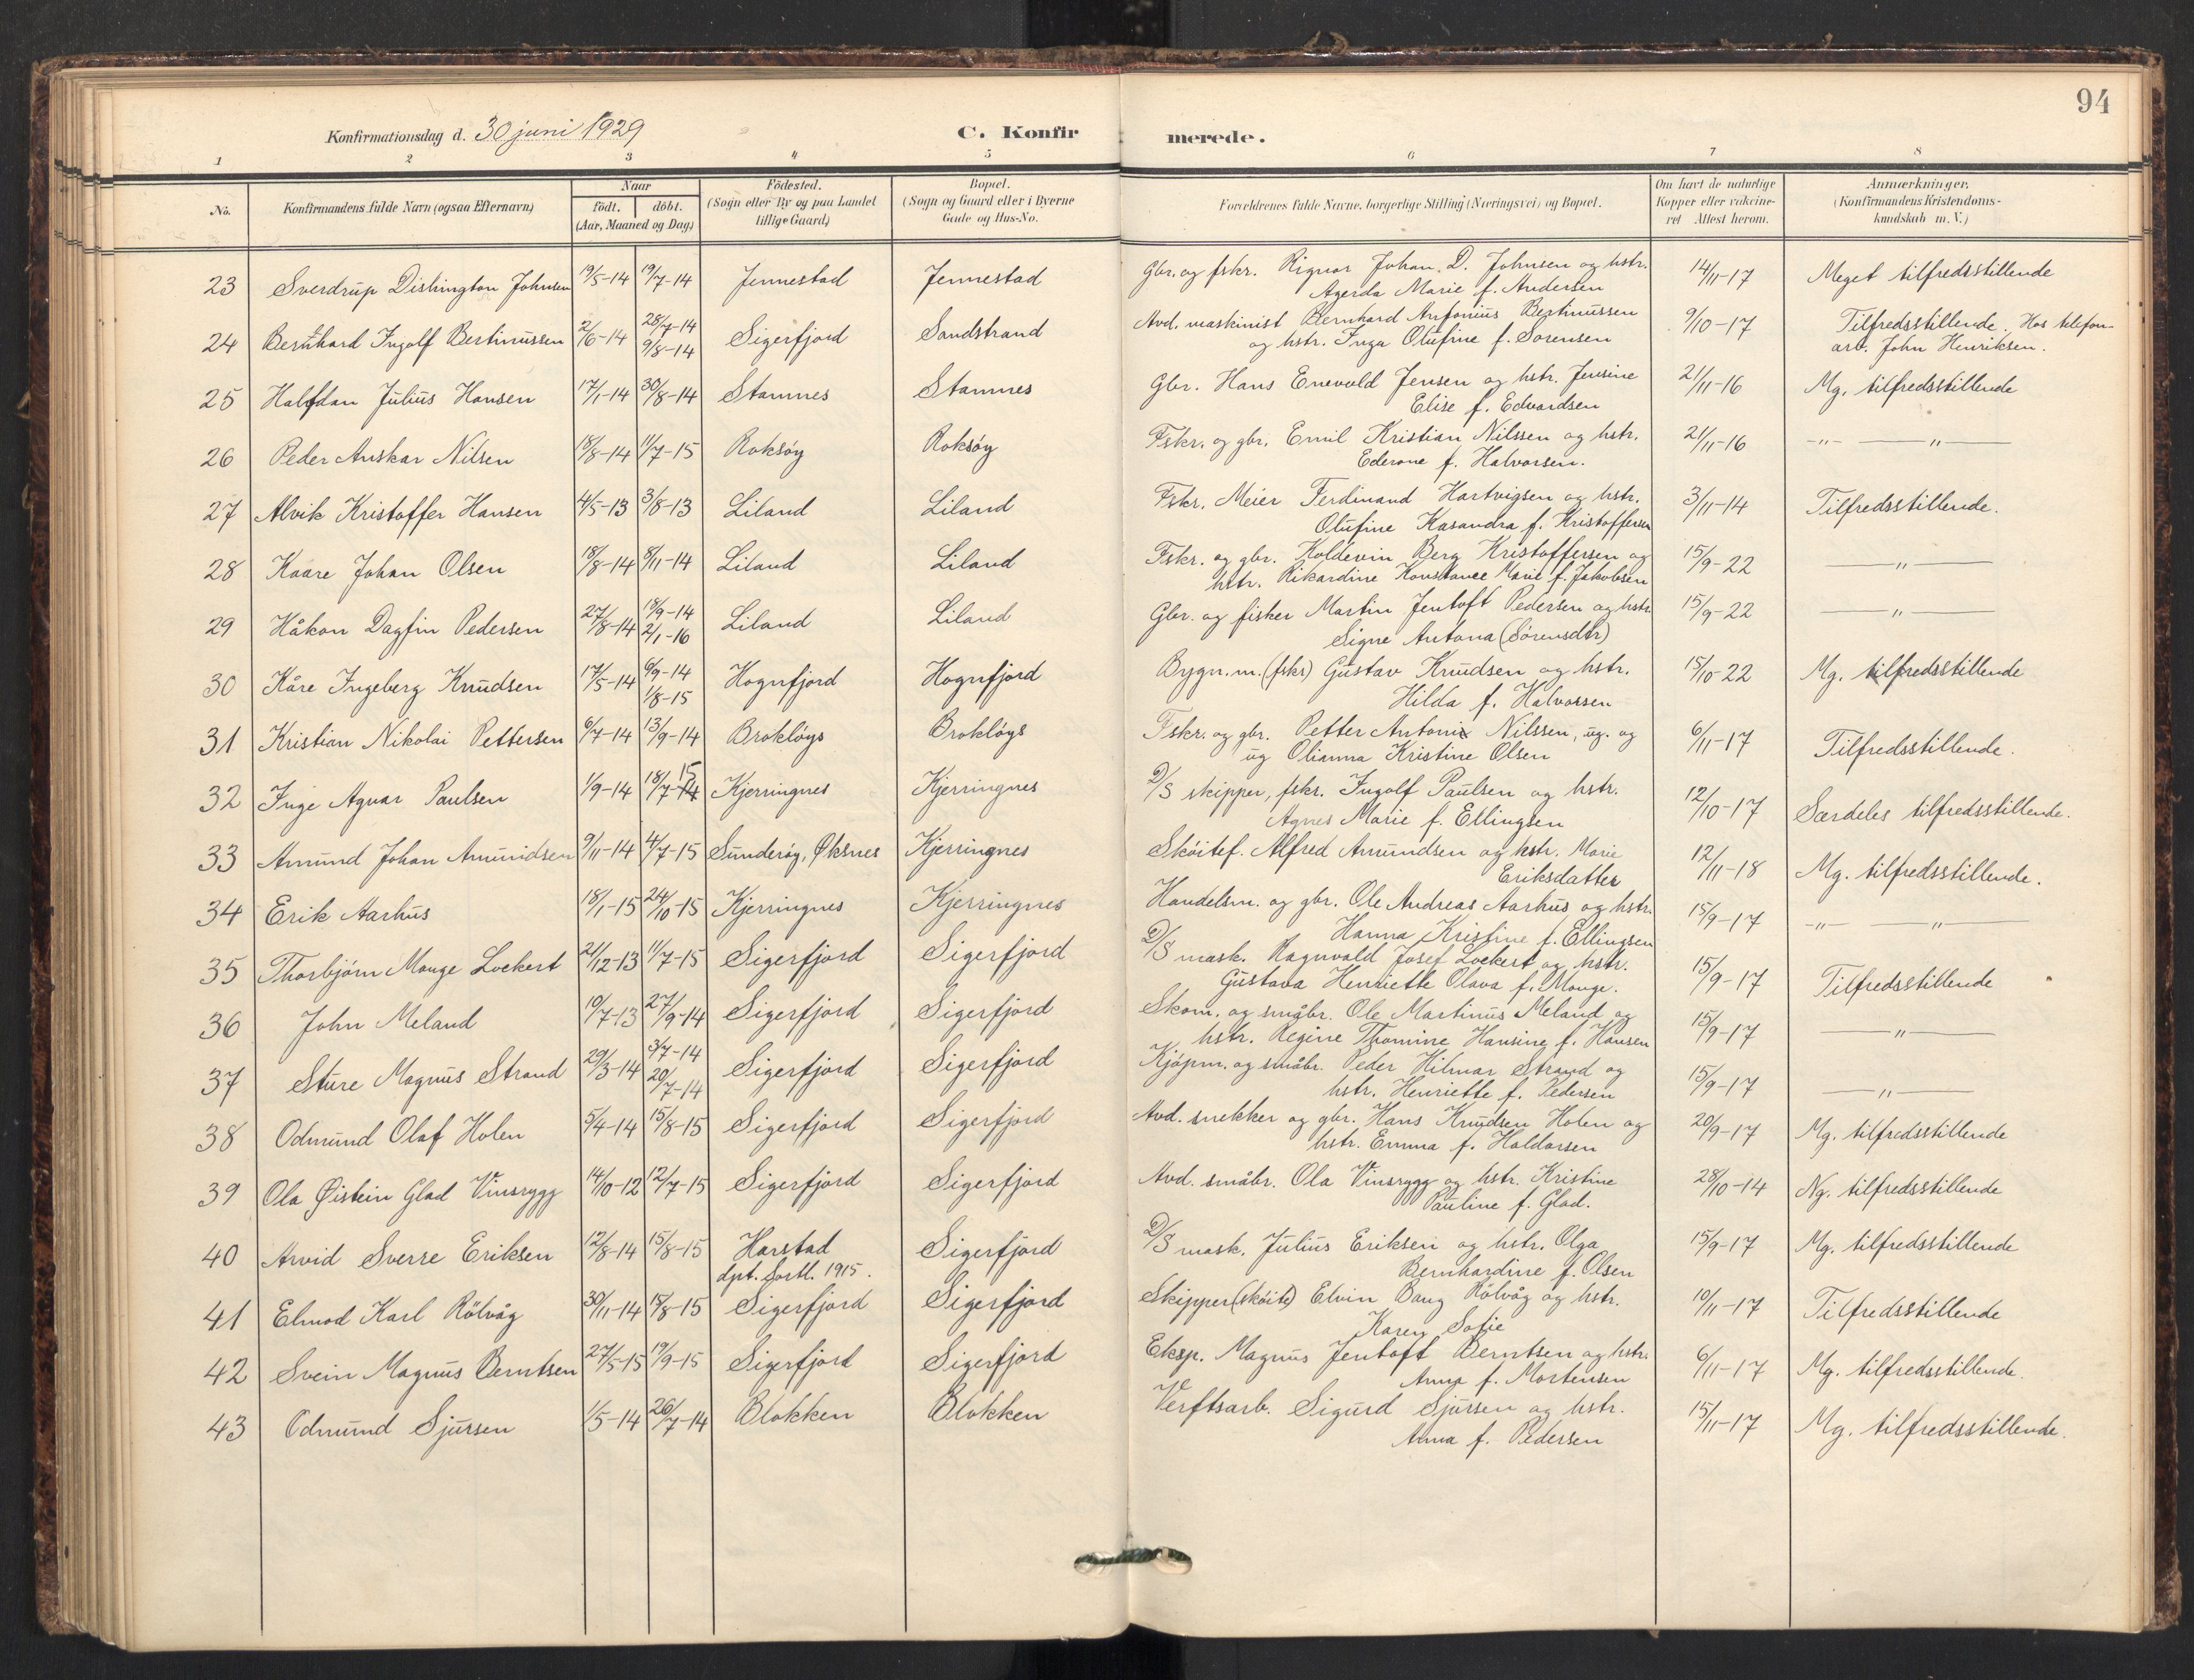 94
Konfirmationsdag d. 30 juni 1929
C. Konfir merede.
1 2 3 4 5 6 7 8
No. Konfirmandens fulde Navn (ogsaa Efternavn) Naar födt. döbt. (Aar, Maaned og Dag) Födested. (Sogn eller By og paa Landet tillige Gaard) Bopæl. (Sogn og Gaard eller i Byerne Gade og Hus-No. Forældrenes fulde Navne, borgerlige Stilling (Næringsvei) og Bopæl. Om havt de naturlige Kopper eller vakcineret Attest herom. Anmærkninger. (Konfirmandens Kristendomskundskab m. V.)
23 Sverdrup Dishington Johnsen 19/5-14 19/7-14 Jennestad Jennestad Gbr. og fskr. Rignor Johan. D. Johnsen og hstr. 14/11-17 Meget tilfredsstillende
Agerda Marie f. Andersen
24 Bernhard Ingolf Bertinussen 2/6-14 28/7-14 9/8-14 Sigerfjord Sandstrand Avd. maskinist Bernhard Antonius Bertinussen 9/10-17 Tilfredsstillende. Hos telefon-
og hstr. Inga Olufine f. Sørensen arb. John Henriksen.
25 Halfdan Julius Hansen 17/1-14 30/8-14 Stamnes Stamnes Gbr. Hans Enevold Jensen og hstr. Jensine 21/11-16 Mg. tilfredsstillende
Elise f. Edvardsen
26 Peder Anskar Nilsen 18/8-14 11/7-15 Roksöy Roksöy Fskr. og gbr. Emil Kristian Nilssen og hstr. 21/11-16 -"- -"-
Ederone f. Halvorsen.
27 Alvik Kristoffer Hansen 4/5-13 3/8-13 Liland Liland Fskr. Meier Ferdinand Hartvigsen og hstr. 3/11-14 Tilfredsstillende.
Olufine Kasandra f. Kristoffersen
28 Kaare Johan Olsen 18/8-14 8/11-14 Liland Liland Fskr. og gbr. Koldevin Berg Kristoffersen og 15/9-22 -"-
hstr. Rikardine Konstance Marie f. Jakobsen
29 Håkon Dagfin Pedersen 27/8-14 18/9-14 2/1-16 Liland Liland Gbr. og fisker Martin Jentoft Pedersen og hstr 15/9-22 -"-
Signe Antona (Sørensdtr)
30 Kåre Ingeberg Knudsen 17/5-14 6/9-14 1/8-15 Hognfjord Hognfjord Bygn.m. (fskr) Gustav Knudsen og hstr. 15/10-22 Mg. tilfredsstillende
Hilda f. Halvorsen
31 Kristian Nikolai Pettersen 6/7-14 13/9-14 Broklöys Broklöys Fskr. og gbr. Petter Antoni Nilssen, ug. og 6/11-17 Tilfredsstillende.
ug Olianna Kristine Olsen
32 Inge Agnar Paulsen 1/9-14 18/7-14 15 Kjerringnes Kjerringnes D/S skipper, fskr. Ingolf Paulsen og hstr. 12/10-17 Særdeles tilfredsstillende.
Agnes Marie f. Ellingsen
33 Amund Johan Amundsen 9/11-14 4/7-15 Sunderöy, Øksnes Kjerringnes Sköitef. Alfred Amundsen og hstr. Marie 12/11-18 Mg. tilfredsstillende.
Eriksdatter
34 Erik Aarhus 18/1-15 24/10-15 Kjerringnes Kjerringnes Handelsm. og gbr. Ole Andreas Aarhus og hstr. 15/9-17 -"- -"-
Hanna Kristine f. Ellingsen
35 Thorbjörn Monge Lockert 21/12-13 11/7-15 Sigerfjord Sigerfjord D/S mask. Ragnvald Josef Lockert og hstr. 15/9-17 Tilfredsstillende
Gustava Henriette Olava f. Monge.
36 John Meland 10/7-13 27/9-14 Sigerfjord Sigerfjord Skom. og småbr. Ole Martinus Meland og 15/9-17 -"-
hstr. Regine Thomine Hansine f. Hansen
37 Sture Magnus Strand 29/3-14 3/7-14 20/7-14 Sigerfjord Sigerfjord Kjöpm. og småbr. Peder Hilmar Strand og 15/9-17 -"-
hstr. Henriette f. Pedersen
38 Odmund Olaf Holen 5/4-14 15/8-15 Sigerfjord Sigerfjord Avd. snekker og gbr. Hans Knudsen Holen og 20/9-17 Mg. tilfredsstillende
hstr. Emma f. Haldorsen
39 Ola Øistein Glad Vinsrygg 14/10-12 12/7-15 Sigerfjord Sigerfjord Avd. småbr. Ola Vinsrygg og hstr. Kristine 28/10-14 Ng. tilfredsstillende
Pauline f. Glad.
40 Arvid Sverre Eriksen 12/8-14 15/8-15 Harstad Sigerfjord D/S mask. Julius Eriksen og hstr. Olga 15/9-17 Mg. tilfredsstillende
dpt. Sortl. 1915. Bernhardine f. Olsen
41 Elmod Karl Rölvåg 30/11-14 15/8-15 Sigerfjord Sigerfjord Skipper (sköite) Elvin Bang Rölvåg og hstr. 10/11-17 Tilfredsstillende
Karen Sofie
42 Svein Magnus Berntsen 27/5-15 19/9-15 Sigerfjord Sigerfjord Eksp. Magnus Jentoft Berntsen og hstr. 6/11-17 Mg. tilfredsstillende.
Anna f. Mortensen
43 Odmund Sjursen 1/5-14 26/7-14 Blokken Blokken Verftsarb. Sigurd Sjursen og hstr. 15/11-17 Mg. tilfredsstillende.
Anna f. Pedersen